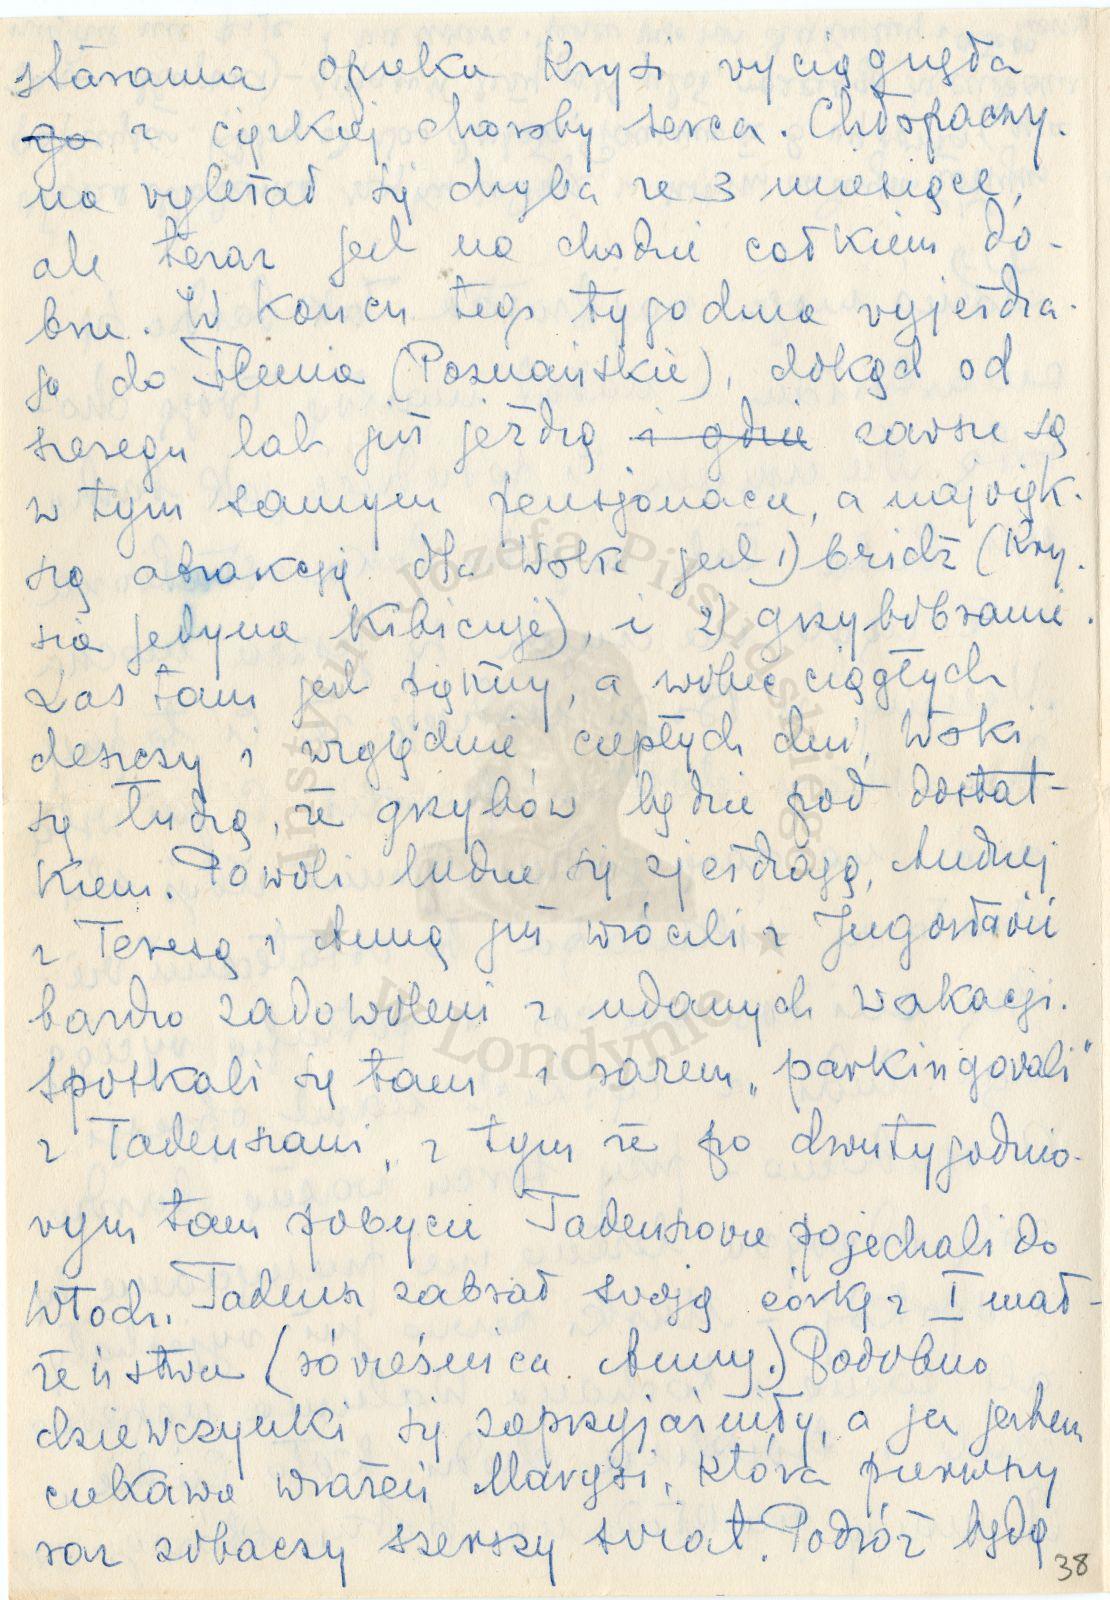 staranna opieka Krysi wyciągnęła
go z ciężkiej choroby serca. Chłopaczy-
na wyleżał się chyba ze 3 miesiące,
ale teraz jest na chodzie całkiem do-
brze. W końcu tego tygodnia wyjeżdża-
ją do Tlenia (Poznańskie), dokąd od
szeregu lat już jeżdżą i gdzie zawsze są
w tym samym pensjonacie, a najwięk-
szą atrakcją dla Wołk jest 1) bridż (Kry-
sia jedynie kibicuje), i 2) grzybobranie.
Las tam jest piękny, a wobec ciągłych
deszczy i względnie ciepłych dni,
się łudzą, że grzybów będzie pod dostat-
kiem. Powoli ludzie się zjeżdżają, Andrzej
z Teresą i Anną już wrócili z Jugosławii
bardzo zadowoleni z udanych wakacji.
Spotkali się tam i razem „parkingowali"
z Tadeuszami, z tym że po dwutygodnio-
wym tam pobycie Tadeuszowie pojechali do
Włoch. Tadeusz zabrał swoją córkę z I mał-
żeństwa (rówieśnica Anny.) Podobno
dziewczynki się zaprzyjaźniły, a ja jestem
ciekawa wrażeń Marysi, która pierwszy
raz zobaczy szerszy świat. Podróż będą
38
Instytut Józefa Piłsudskiego
w Londynie